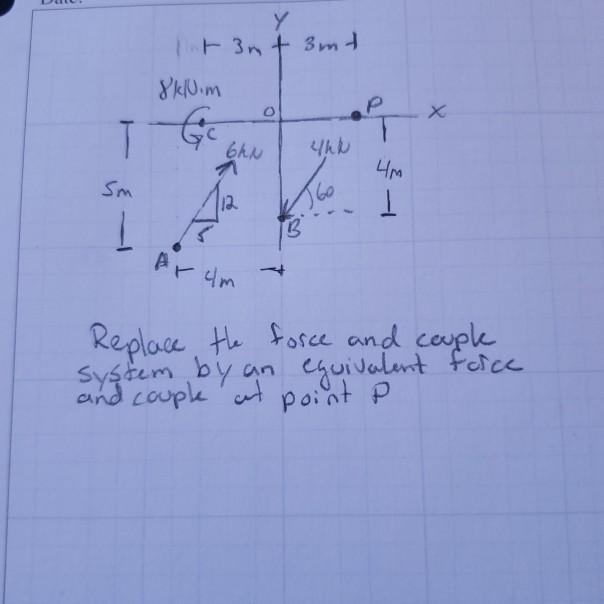 Date:
Y
3m 3m
8kN.m
O P X
C
6kN 4kN
4m
5m
12 60
5 B
A
4m
Replace the force and couple
system by an equivalent force
and couple at point P